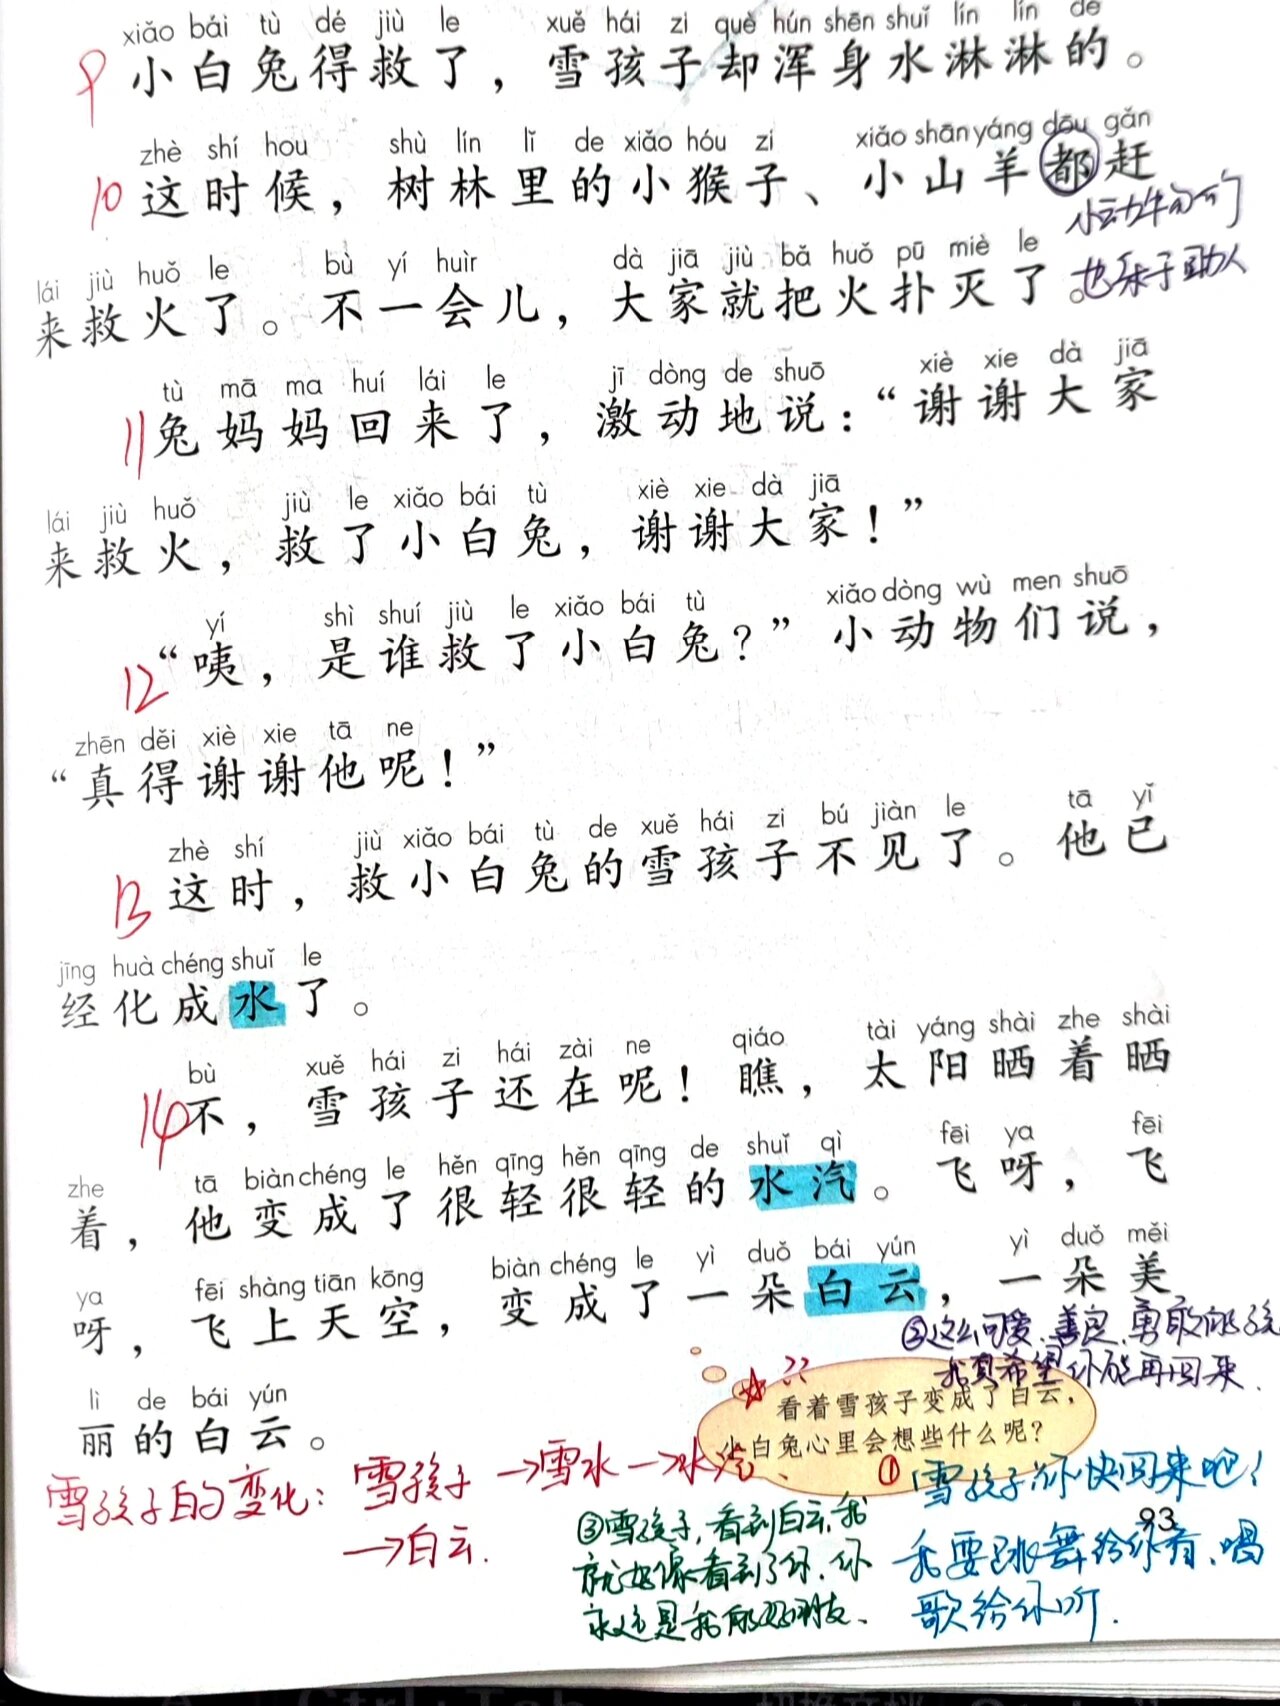 xiǎo bái tù dé jiù le xuě hái zi què hún shēn shuǐ lín lín de
9 小白兔得救了，雪孩子却浑身水淋淋的。
zhè shí hou shù lín lǐ de xiǎo hóu zi xiǎo shān yáng dōu gǎn
10 这时候，树林里的小猴子、小山羊都赶
小动物们
也乐于助人
lái jiù huǒ le bù yí huìr dà jiā jiù bǎ huǒ pū miè le
来救火了。不一会儿，大家就把火扑灭了。
tù mā ma huí lái le jī dòng de shuō xiè xie dà jiā
11 兔妈妈回来了，激动地说：“谢谢大家
lái jiù huǒ jiù le xiǎo bái tù xiè xie dà jiā
来救火，救了小白兔，谢谢大家！”
yí shì shuí jiù le xiǎo bái tù xiǎo dòng wù men shuō
12 “咦，是谁救了小白兔？”小动物们说，
zhēn děi xiè xie tā ne
“真得谢谢他呢！”
zhè shí jiù xiǎo bái tù de xuě hái zi bú jiàn le tā yǐ
13 这时，救小白兔的雪孩子不见了。他已
jīng huà chéng shuǐ le
经化成水了。
bù xuě hái zi hái zài ne qiáo tài yáng shài zhe shài
14 不，雪孩子还在呢！瞧，太阳晒着晒
zhe tā biàn chéng le hěn qīng hěn qīng de shuǐ qì fēi ya fēi
着，他变成了很轻很轻的水汽。飞呀，飞
ya fēi shàng tiān kōng biàn chéng le yì duǒ bái yún yì duǒ měi
呀，飞上天空，变成了一朵白云，一朵美
lì de bái yún
丽的白云。
②这么可爱、善良、勇敢的孩
我真希望你能再回来.
看着雪孩子变成了白云，
小白兔心里会想些什么呢？
雪孩子的变化：雪孩子→雪水→水汽
→白云.
①雪孩子，你快回来吧！
我要跳舞给你看、唱
歌给你听.
③雪孩子，看到白云，我
就好像看到了你，你
永远是我的好朋友.
93